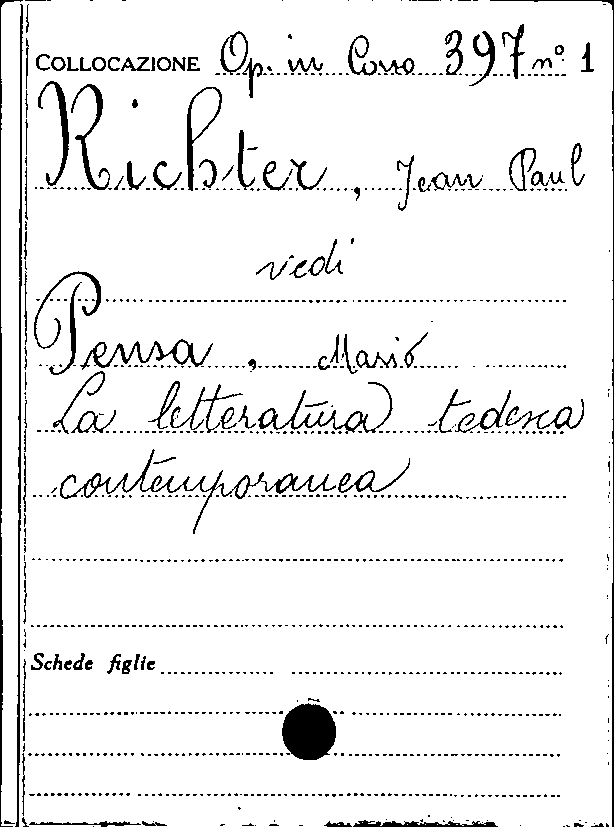 COLLOCAZIONE Op. in Corso 397 n° 1
Richter, Jean Paul
vedi
Pensa, Mario
La letteratura tedesca
contemporanea
Schede figlie